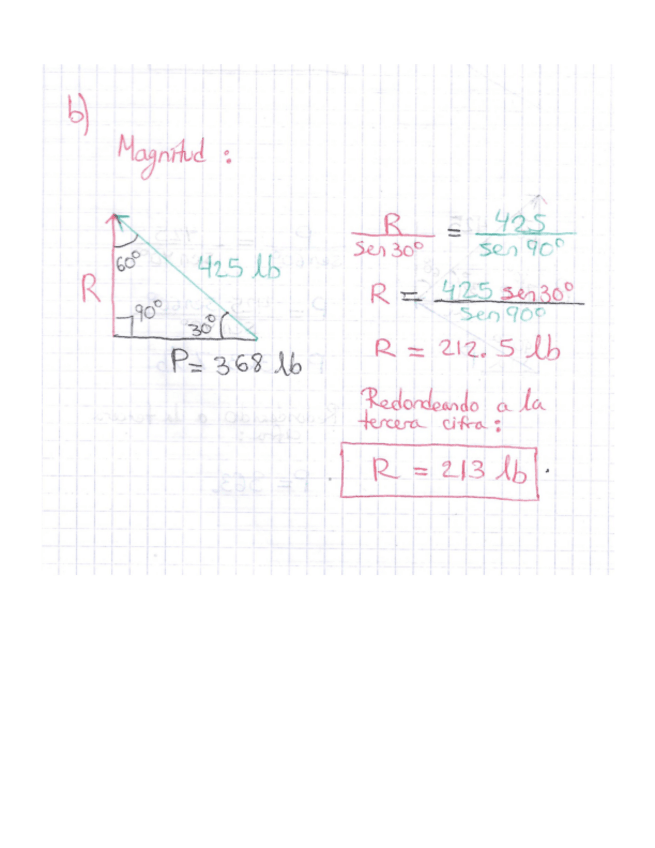 b)
Magnitud :
60°
425 lb
R
90°
30°
P= 368 lb
R / sen 30° = 425 / sen 90°
R = 425 sen 30° / sen 90°
R = 212.5 lb
Redondeando a la
tercera cifra :
R = 213 lb.